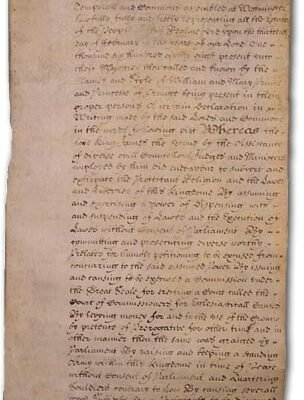 Temporall and Commons assembled at Westminster
Lawfully fully and freely representing all the Estates
of the People of this Realme did upon the thirteenth
day of February in the yeare of our Lord One
thousand six hundred eighty eight present unto
their Majesties then called and known by the
Names and Stile of William and Mary Prince
and Princesse of Orange being present in their
proper persons A certain Declaration in
Writing made by the said Lords and Commons
in the words following viz Whereas the
late King James the second by the Assistance
of diverse evill Councellors Judges and Ministers
imployed by him did endeavour to subvert and
extirpate the Protestant Religion and the Lawes
and Liberties of this Kingdome By assuming
and exercising a power of Dispensing with
and suspending of Lawes and the Execution of
Lawes without Consent of Parliament By
committing and prosecuting diverse worthy
Prelates for humbly petitioning to be excused from
concurring to the said assumed power By issuing
and causing to be executed a Commission under
the Great Seale for erecting a Court called the
Court of Commissioners for Ecclesiastical Causes
By levying money for and to the use of the Crowne
by pretence of Prerogative for other time and in
other manner then the same was granted by
Parliament By raising and keeping a standing
Army within this Kingdome in time of Peace
without Consent of Parliament and Quartering
Souldiers contrary to Law By causing severall
good